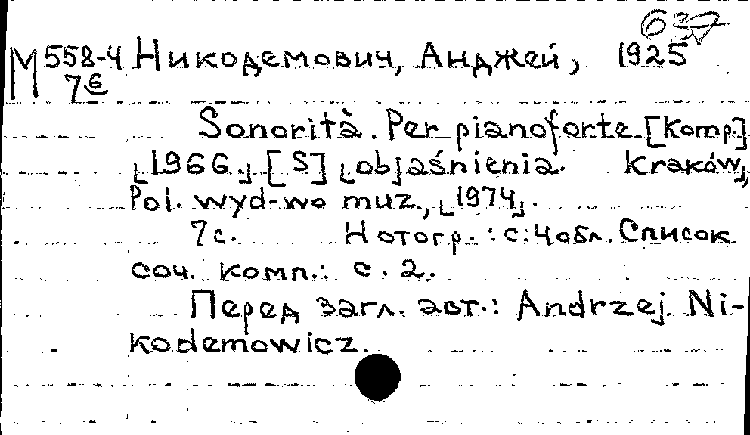 637
М 558-4 Никодемович, Анджей, 1925
7б
Sonorità. Per pianoforte [Komp.]
[1966.] [S] [objaśnienia. Kraków,]
Pol. wyd-wo muz., [1974].
7с. Нотогр.: с. 4 обл. Список
соч. комп.: с. 2.
Перед загл. авт.: Andrzej Ni-
kodemowicz.